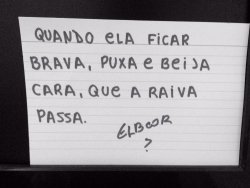 QUANDO ELA FICAR
BRAVA, PUXA E BEIJA
CARA, QUE A RAIVA
PASSA.
ELBOOR
?